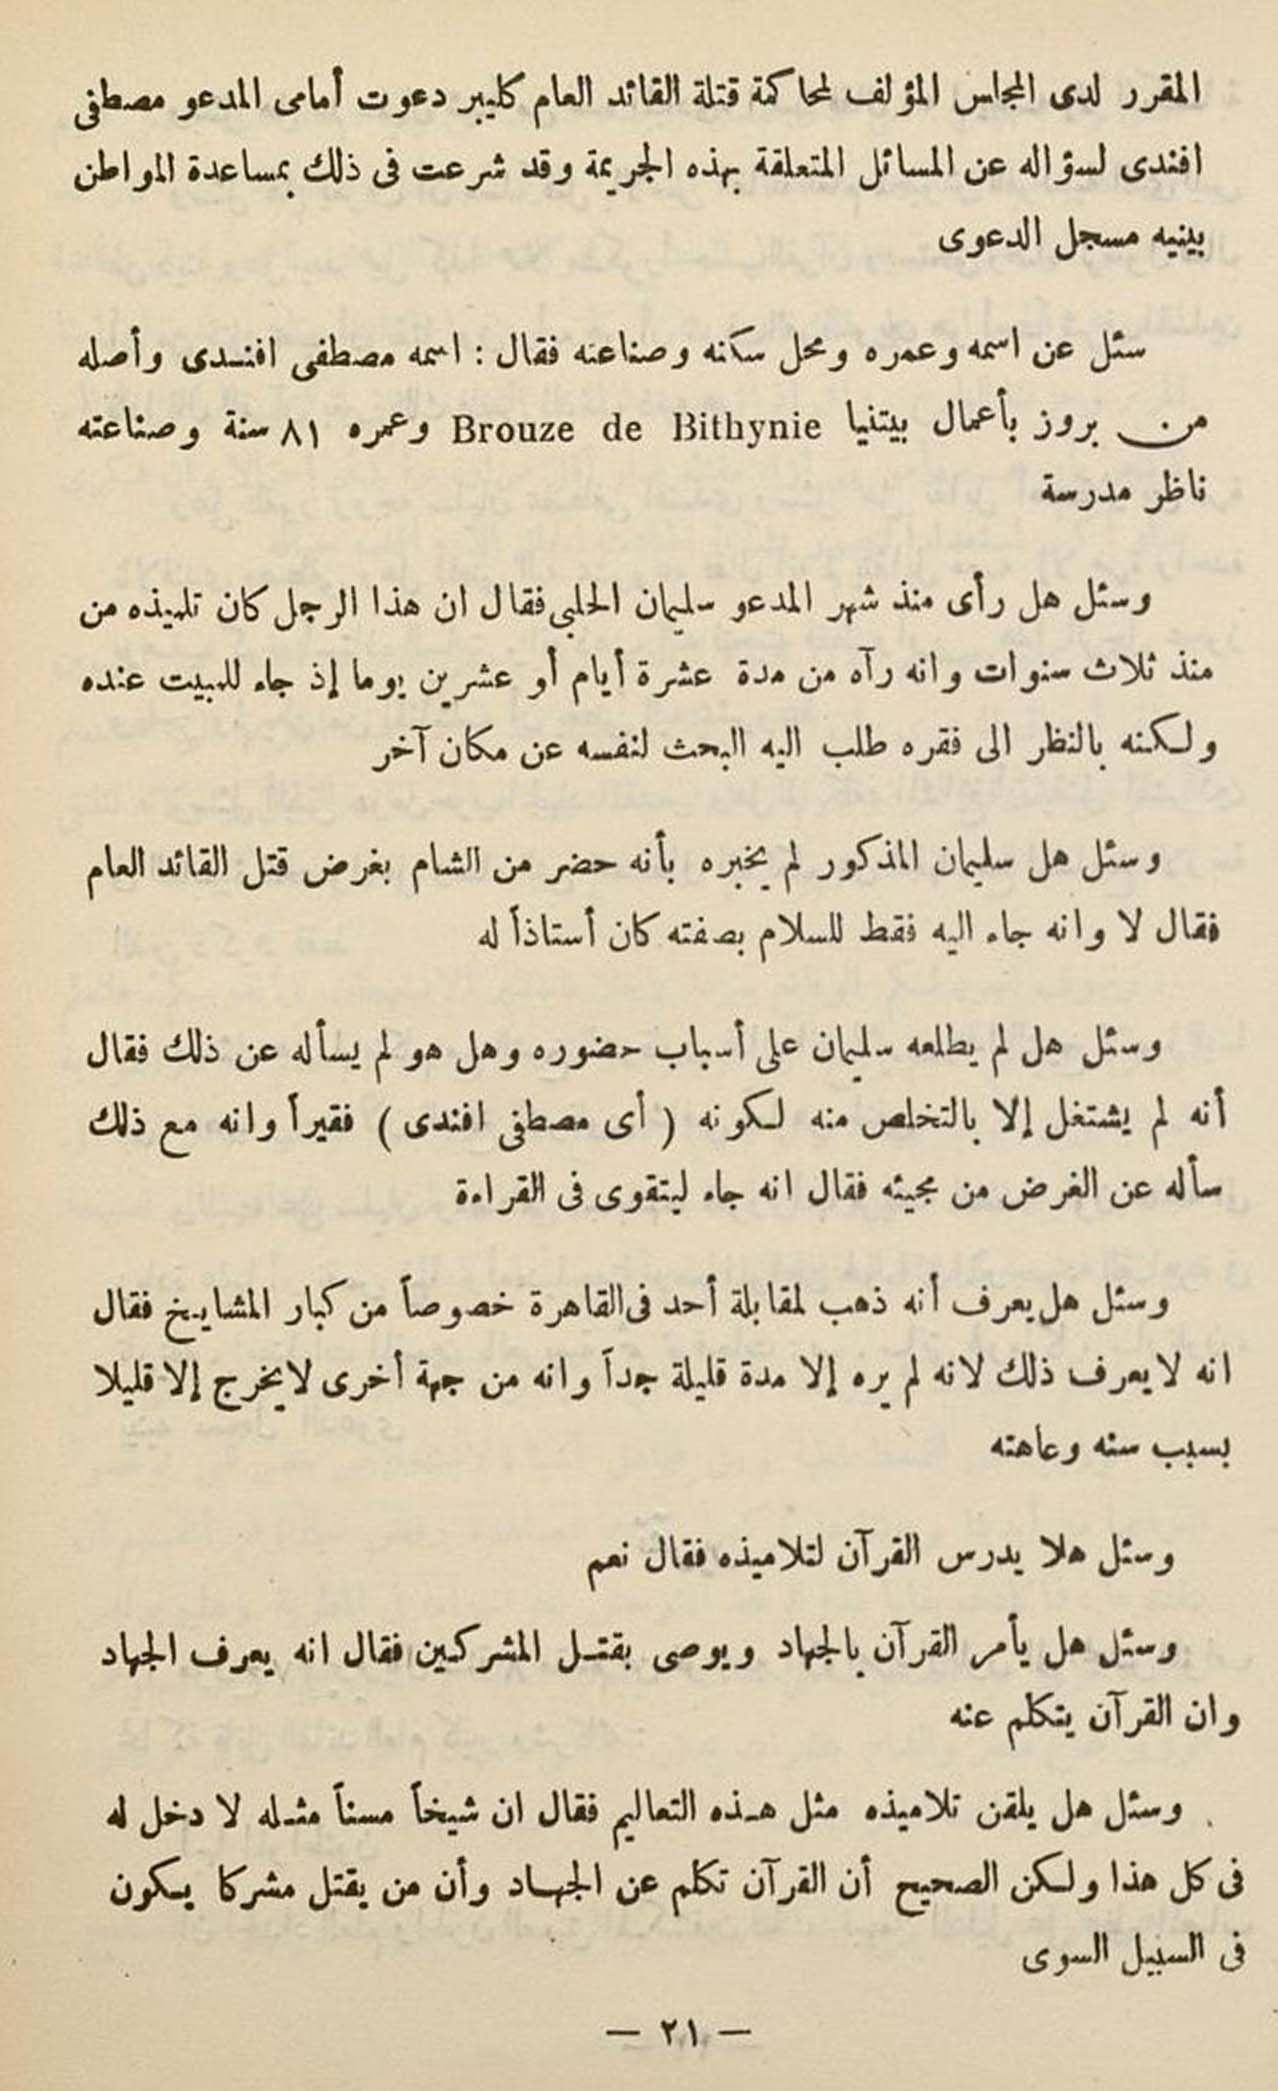 المقرر لدى المجلس المؤلف لمحاكمة قتلة القائد العام كليبر دعوت أمامى المدعو مصطفى
افندى لسؤاله عن المسائل المتعلقة بهذه الجريمة وقد شرعت فى ذلك بمساعدة المواطن
بينيه مسجل الدعوى
سئل عن اسمه وعمره ومحل سكنه وصناعته فقال : اسمه مصطفى افندى وأصله
من بروز بأعمال بيتنيا Brouze de Bithynie وعمره ٨١ سنة وصناعته
ناظر مدرسة
وسئل هل رأى منذ شهر المدعو سليمان الحلبي فقال ان هذا الرجل كان تلميذه من
منذ ثلاث سنوات وانه رآه من مدة عشرة أيام أو عشرين يوما إذ جاء للمبيت عنده
ولكنه بالنظر الى فقره طلب اليه البحث لنفسه عن مكان آخر
وسئل هل سليمان المذكور لم يخبره بأنه حضر من الشام بغرض قتل القائد العام
فقال لا وانه جاء اليه فقط للسلام بصفته كان أستاذاً له
وسئل هل لم يطلعه سليمان على أسباب حضوره وهل هو لم يسأله عن ذلك فقال
أنه لم يشتغل إلا بالتخلص منه لكونه ( أى مصطفى افندى ) فقيراً وانه مع ذلك
سأله عن الغرض من مجيئه فقال انه جاء ليتقوى فى القراءة
وسئل هل يعرف أنه ذهب لمقابلة أحد فى القاهرة خصوصاً من كبار المشايخ فقال
انه لا يعرف ذلك لانه لم يره إلا مدة قليلة جداً وانه من جهة أخرى لا يخرج إلا قليلا
بسبب سنه وعاهته
وسئل هلا يدرس القرآن لتلاميذه فقال نعم
وسئل هل يأمر القرآن بالجهاد ويوصى بقتل المشركين فقال انه يعرف الجهاد
وان القرآن يتكلم عنه
وسئل هل يلقن تلاميذه مثل هذه التعاليم فقال ان شيخاً مسناً مثله لا دخل له
فى كل هذا ولكن الصحيح أن القرآن تكلم عن الجهاد وأن من يقتل مشركا يكون
فى السبيل السوى
— ٢١ —